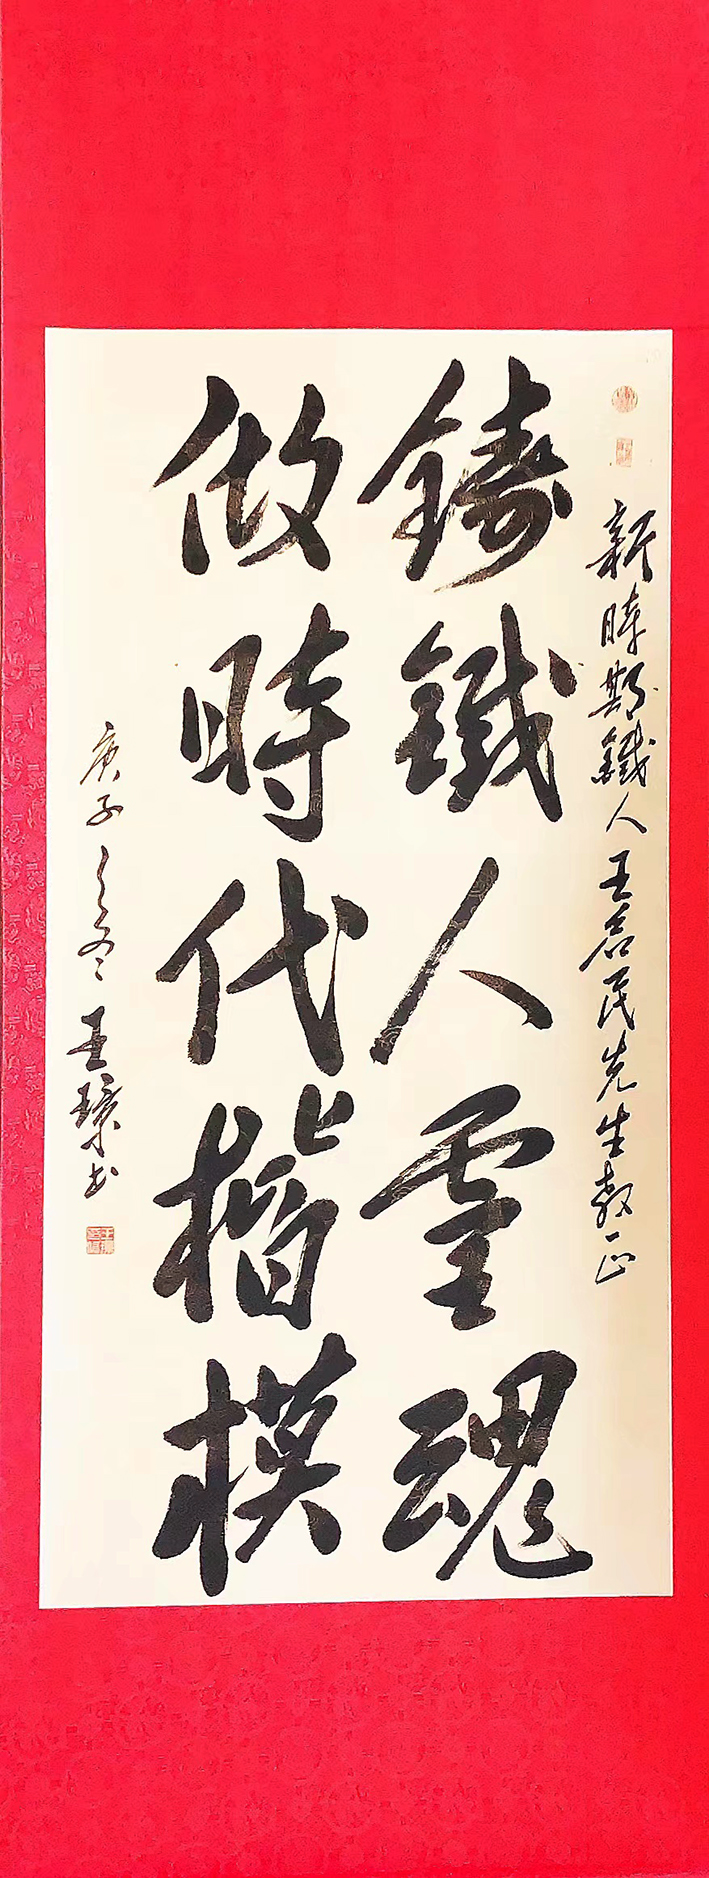 新時期鐵人王启民先生教正
鑄鐵人靈魂
做時代楷模
庚子之冬 王书